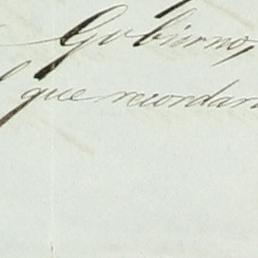 Gobierno,
que recordar